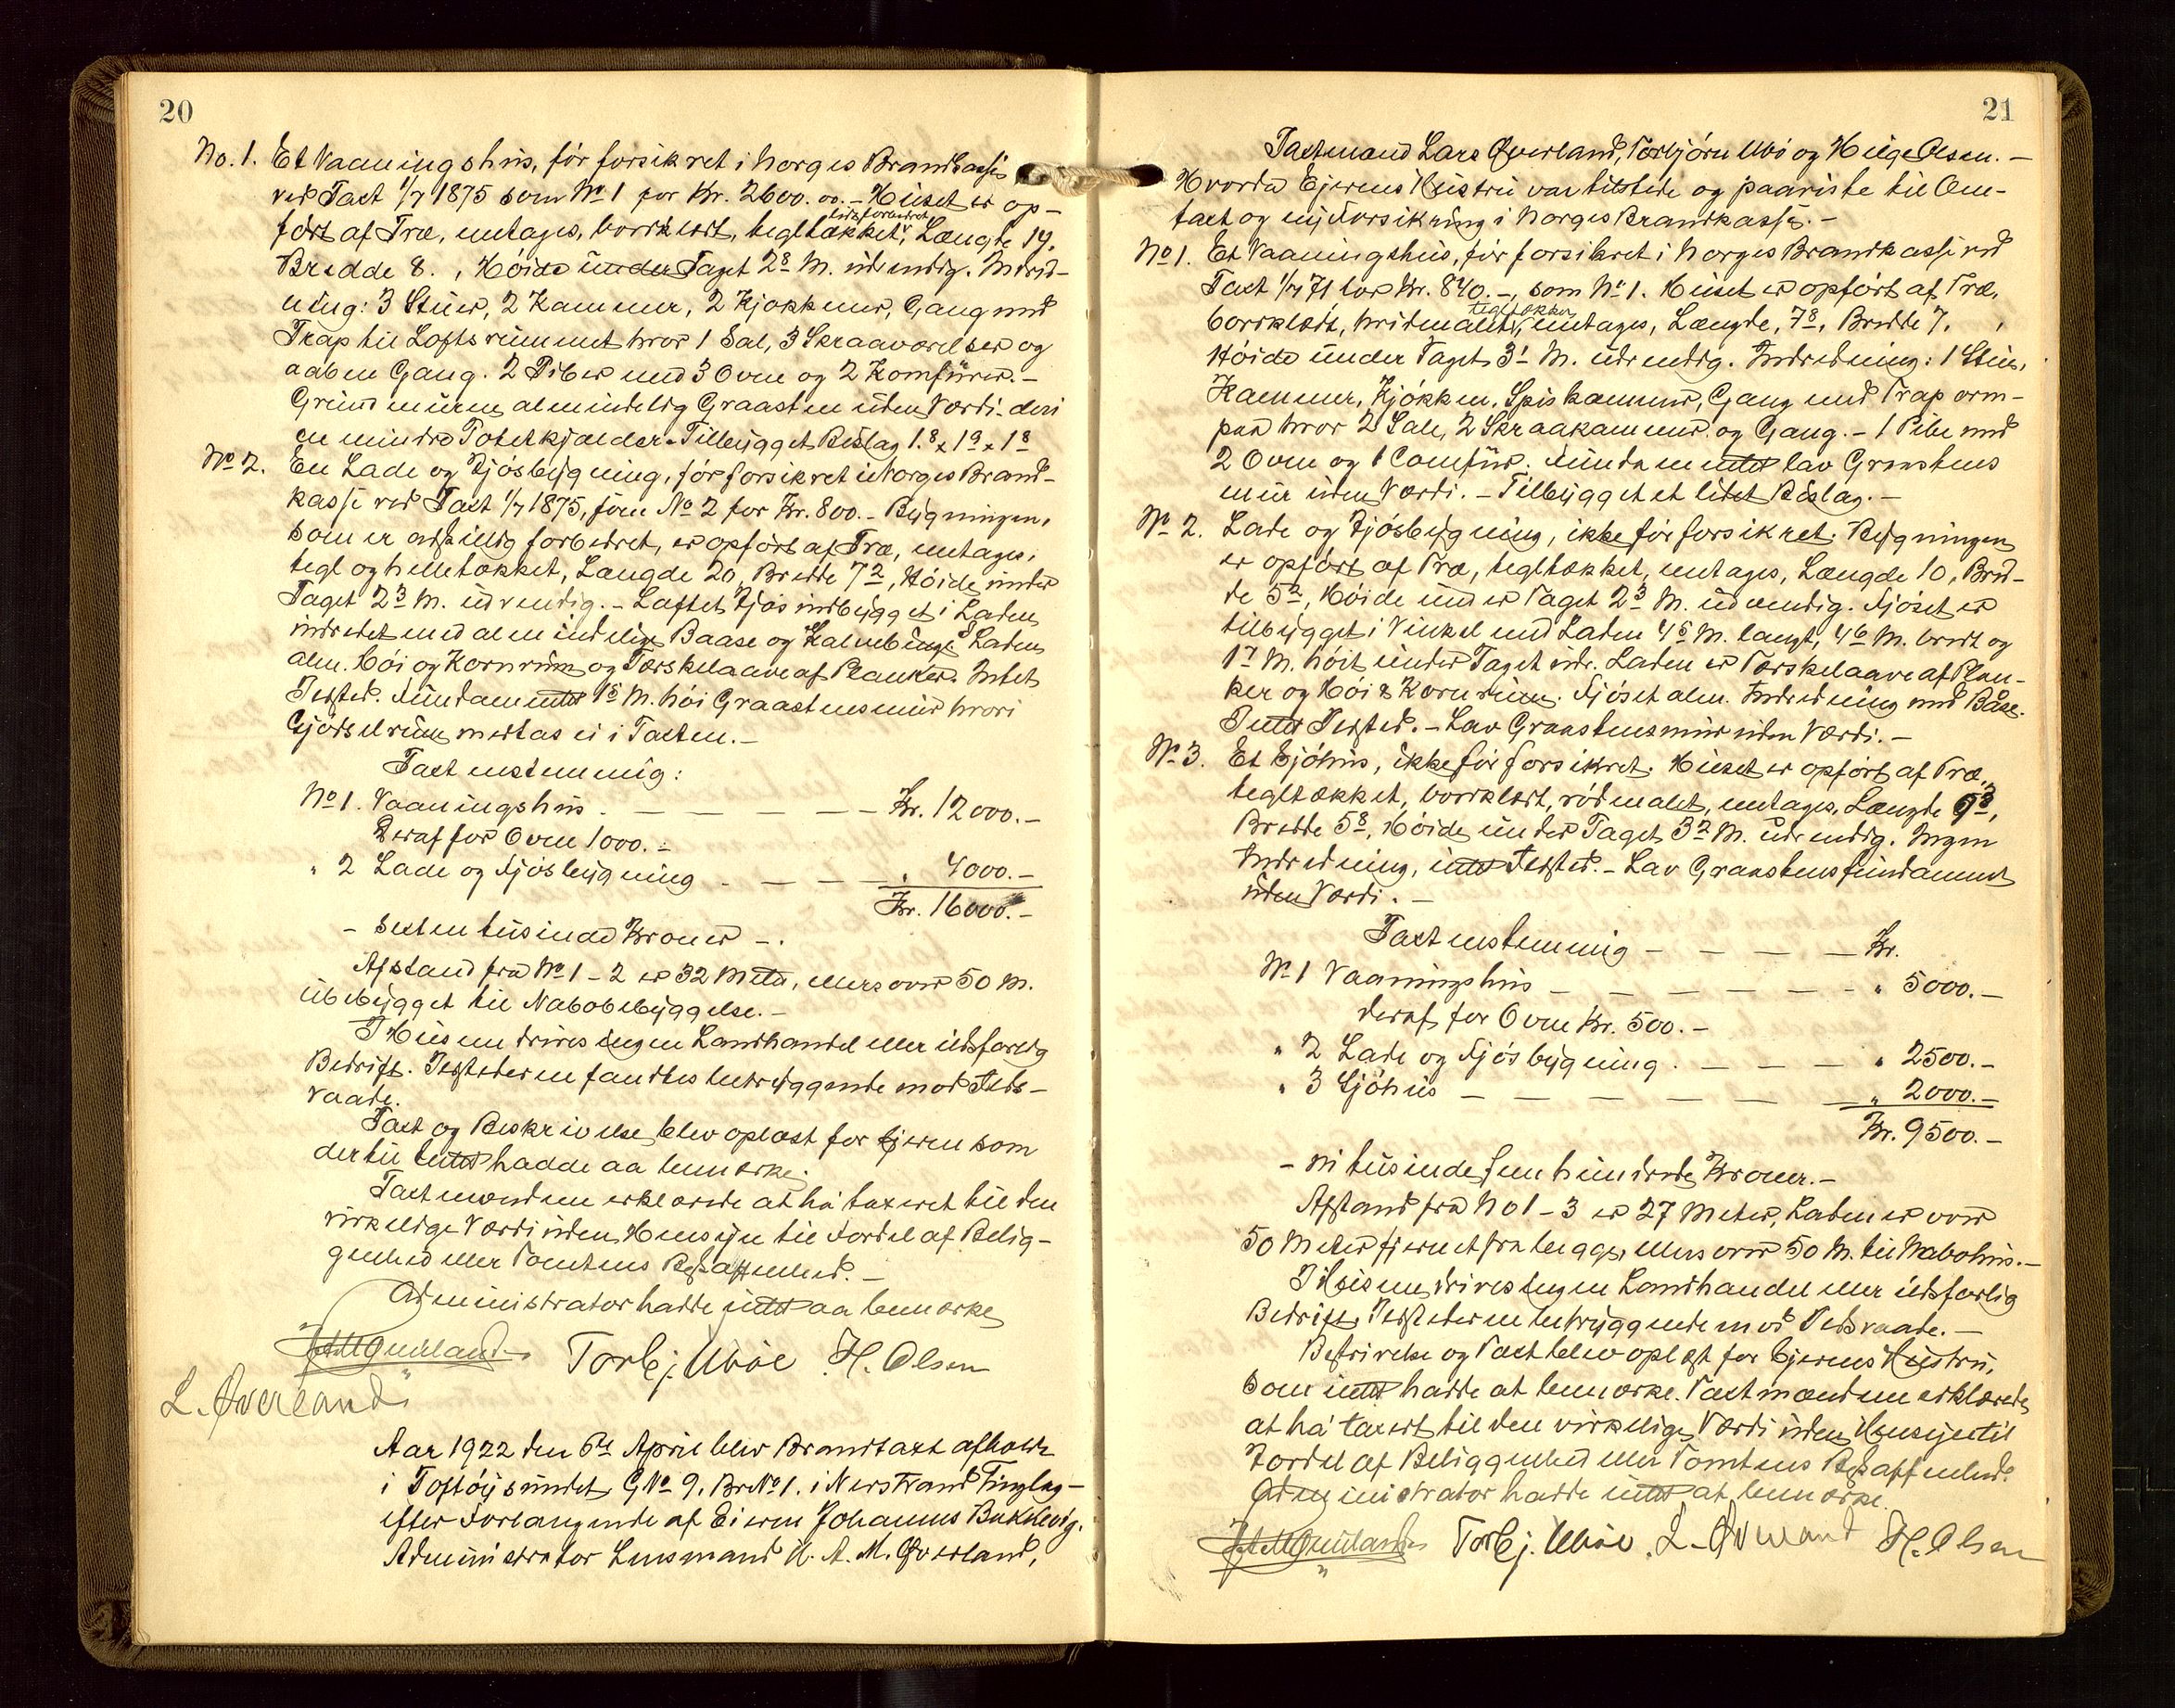 20
No. 1. Et Vaaningshus, før forsikret i Norges Brandkasse
ved Taxt 1/7 1875 som No 1 for Kr. 2600.00. - Huset er op-
ført af Træ, entages, bordklædt, tegltækket, Længde 19.
Bredde 8. , Høide under Taget 2 8 M. udvendig. Indred-
ning: 3 Stuer, 2 Kammer, 2 Kjøkkener, Gang med
Trap til Loftsrummet hvor 1 Sal, 3 Skraaværelser og
aaben Gang. 2 Piber med 3 Ovne og 2 Komfürer. -
Grundmuren almindelig Graasten uden Værdi - deri
en mindre Potetkjælder. Tilbygget Bislag 1.8 x 1 9 x 1 8
No 2. En Lade og Fjøsbygning, før forsikret i Norges Brand-
kasse ved Taxt 1/7 1875, som No 2 for Kr. 800. - Bygningen,
som er adskillig forbedret, er opført af Træ, entages,
tegl og helletækket, Længde 20, Bredde 7 2, Høide under
Taget 2 3 M. udvendig. - Laftet Fjøs indbygget i Laden
indredet med almindelig Baase og Kalvebinge. Laden
alm. Høi og Kornrum og Tærskelaave af Planker. Intet
Ildsted. Fundamentet 1 5 M. høi Graastensmur hvori
Gjødselrum medtas ei i Taxten. -
Taxt enstemmig:
No 1. Vaaningshus. - - - - - Kr. 12000. -
Deraf for Ovne 1000. -
" 2 Lade og Fjøsbygning - - - - " 4000. -
Kr. 16000. -
- Sexten tusinde Kroner -.
Afstand fra No 1 - 2 er 32 Meter, ellers over 50 M.
ubebygget til Nabobebyggelse. -
I Husene drives ingen Landhandel eller ildsfarlig
Bedrift. Ildstederne fandtes betryggende mod Ilds-
vaade.
Taxt og Beskrivelse blev oplæst for Ejeren som
dertil intet hadde aa bemærke.
Taxtmændene erklærede at ha taxeret til den
virkelige Værdi uden Hensyn til Fordel af Belig-
genhed eller Tomtens Beskaffenhed. -
Administrator hadde intet aa bemærke
Torbj. Ubøe H. Olsen
L. Øverland
Aar 1922 den 6te April blev Brandtaxt afholdt
i Toftøysundet G No 9. Br No 1. i Nerstrand Tinglag -
efter Forlangende af Eieren Johannes Bukkevig.
Administrator Lensmand K. A. M. Øverland,
21
Taxtmænd Lars Øverland, Torbjørn Ubø og Helge Olsen. -
Hvorda Ejerens Hustru var tilstede og paaviste til Om-
taxt og ny Forsikring i Norges Brandkasse. -
No 1. Et Vaaningshus, før forsikret i Norges Brandkasse ved
Taxt 1/7 71 for Kr. 840. -, som No 1. Huset er opført af Træ,
bordklædt, hvidmalet, tegltækket, entages, Længde, 7 8, Bredde 7. ,
Høide under Taget 3 1 M. udvendig. Indredning: 1 Stue,
Kammer, Kjøkken, Spiskammer, Gang med Trap oven-
paa hvor 2 Sale, 2 Skraakammer og Gang. - 1 Pibe med
2 Ovne og 1 Comfür. Fundamentet lav Graastens
mur uden Værdi. - Tilbygget et lidet Bislag. -
No 2. Lade og Fjøsbygning, ikke før forsikret. Bygningen
er opført af Træ, tegltækket, entages, Længde 10, Bred-
de 5 2, Høide under Taget 2 3 M. udvendig. Fjøset er
tilbygget i Vinkel med Laden 4 5 M. langt, 4 6 M. bredt og
1 7 M. høit under Taget udv. Laden er Tærskelaave af Plan-
ker og Høi & Kornrum. Fjøset alm. Indredning med Båse.
Intet Ildsted. - Lav Graastensmur uden Værdi. -
No 3. Et Sjøhus, ikke før forsikret. Huset er opført af Træ,
tegltækket, bordklædt, rødmalet, entages, Længde 9 3,
Bredde 5 8, Høide under Taget 3 2 M. udvendig. Ingen
Indredning, intet Ildsted. - Lav Graastensfundament
uden Værdi. -
Taxt enstemmig - - - - Kr.
No 1 Vaaningshus - - - - - - " 5000. -
deraf for Ovne Kr. 500. -
" 2 Lade og Fjøsbygning. - - - " 2500. -
" 3 Sjøhus - - - - - - " 2000. -
Kr. 9500. -
- Ni tusinde fem hundrede Kroner. -
Afstand fra No 1 - 3 er 27 Meter, Laden er over
50 Meter fjernet fra begge, ellers over 50 M. til Nabohus. -
I Husene drives ingen Landhandel eller ildsfarlig
Bedrift, Ildstederne betryggende mod Ildsvaade. -
Beskrivelse og Taxt blev oplæst for Ejerens Hustru,
som intet hadde at bemærke. Taxtmændene erklærede
at ha taxert til den virkelige Værdi uden Hensyn til
Fordel af Beliggenhed eller Tomtens Beskaffenhed.
Administrator hadde intet at bemærke.
Torbj. Ubøe. L. Øverland H. Olsen